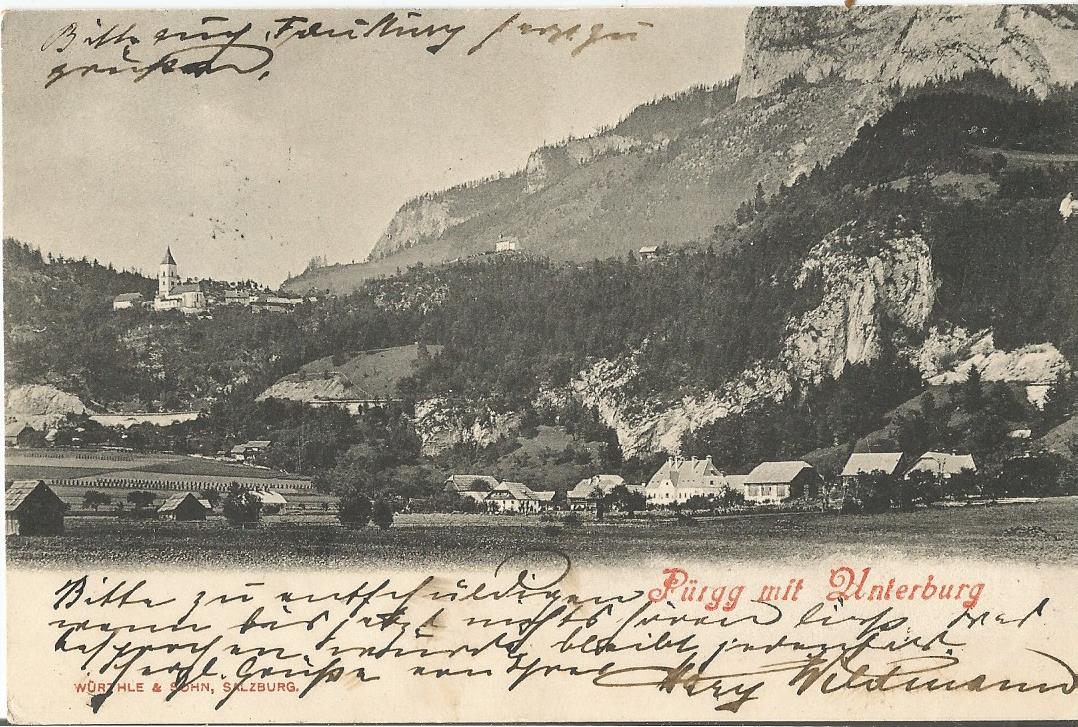 Bitte auch, Familie herzl. zu
grüßen,
Pürgg mit Unterburg
Bitte zu entschuldigen
wenn bis jetzt nichts hören ließ,
besprochen wurde bleibt jederzeit.
Herzl. Grüße von Ihrer
WÜRTHLE & SOHN, SALZBURG.